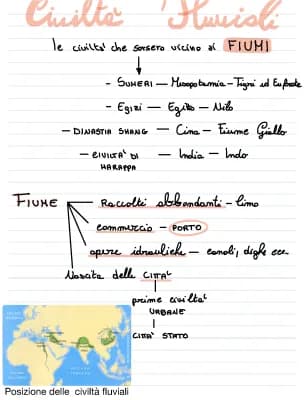 Civiltà Fluviali
le civiltà che sorsero vicino ai FIUMI
- SUMERI — Mesopotamia - Tigri ed Eufrate
- EGIZI — Egitto — Nilo
- DINASTIA SHANG — Cina — Fiume Giallo
- CIVILTÀ DI HARAPPA — India — Indo
FIUME
Raccolti abbondanti - limo
commercio - PORTO
opere idrauliche — canali, dighe ecc.
Nascita delle CITTÀ
prime civiltà
URBANE
CITTÀ STATO
Posizione delle civiltà fluviali